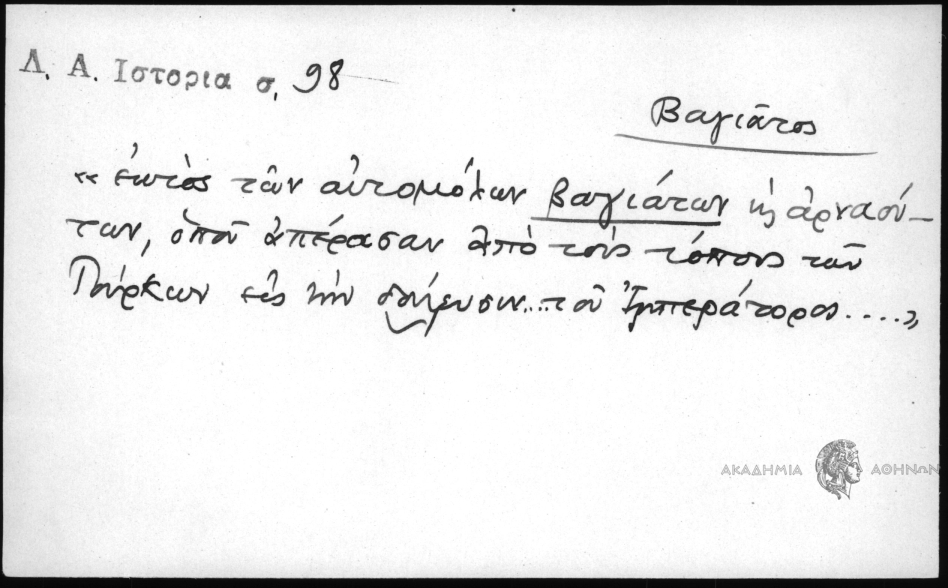 Λ. Α. Ιστορια σ. 98
Βαγιᾶτος
« ἐκτὸς τῶν αὐτομόλων βαγιάτων κ̀ ἀρναού-
των, ὁποῦ ἀπέρασαν ἀπὸ τοὺς τόπους τῶν
Τούρκων εἰς τὴν δούλευσιν....τοῦ Ἰμπεράτορος ....»
ΑΚΑΔΗΜΙΑ ΑΘΗΝΩΝ